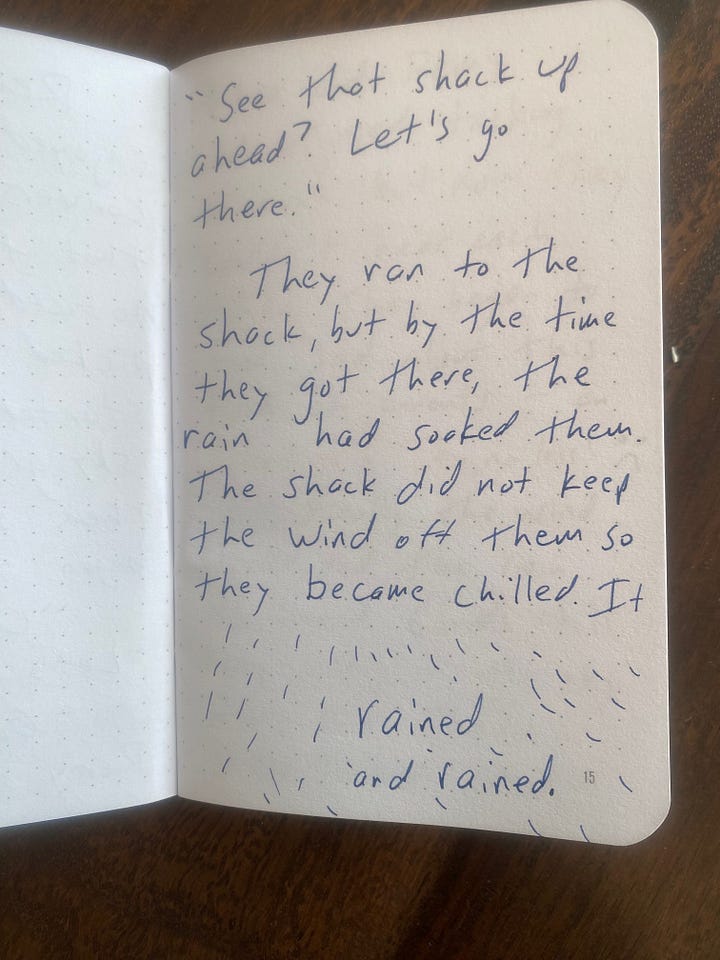 "See that shack up
ahead? Let's go
there."
They ran to the
shack, but by the time
they got there, the
rain had soaked them.
The shack did not keep
the wind off them so
they became chilled. It
rained
and rained.
15